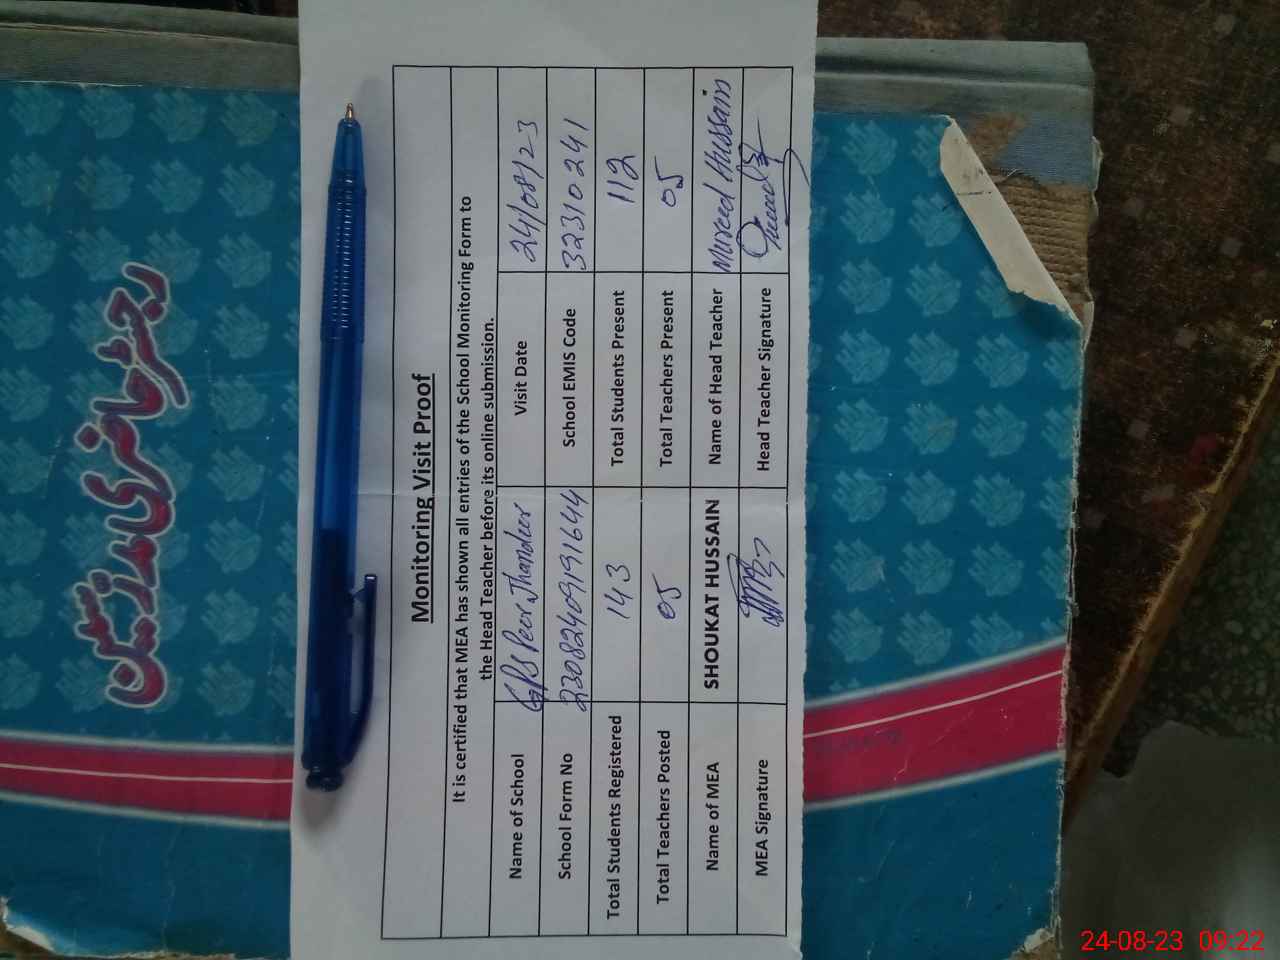 Monitoring Visit Proof
It is certified that MEA has shown all entries of the School Monitoring Form to
the Head Teacher before its online submission.
Name of School GPS Peer Jhandeer Visit Date 24/08/23
School Form No 23082409191644 School EMIS Code 32310241
Total Students Registered 143 Total Students Present 112
Total Teachers Posted 05 Total Teachers Present 05
Name of MEA SHOUKAT HUSSAIN Name of Head Teacher Mureed Hussain
MEA Signature Head Teacher Signature
رجسٹر حاضری مدرسین
24-08-23 09:22